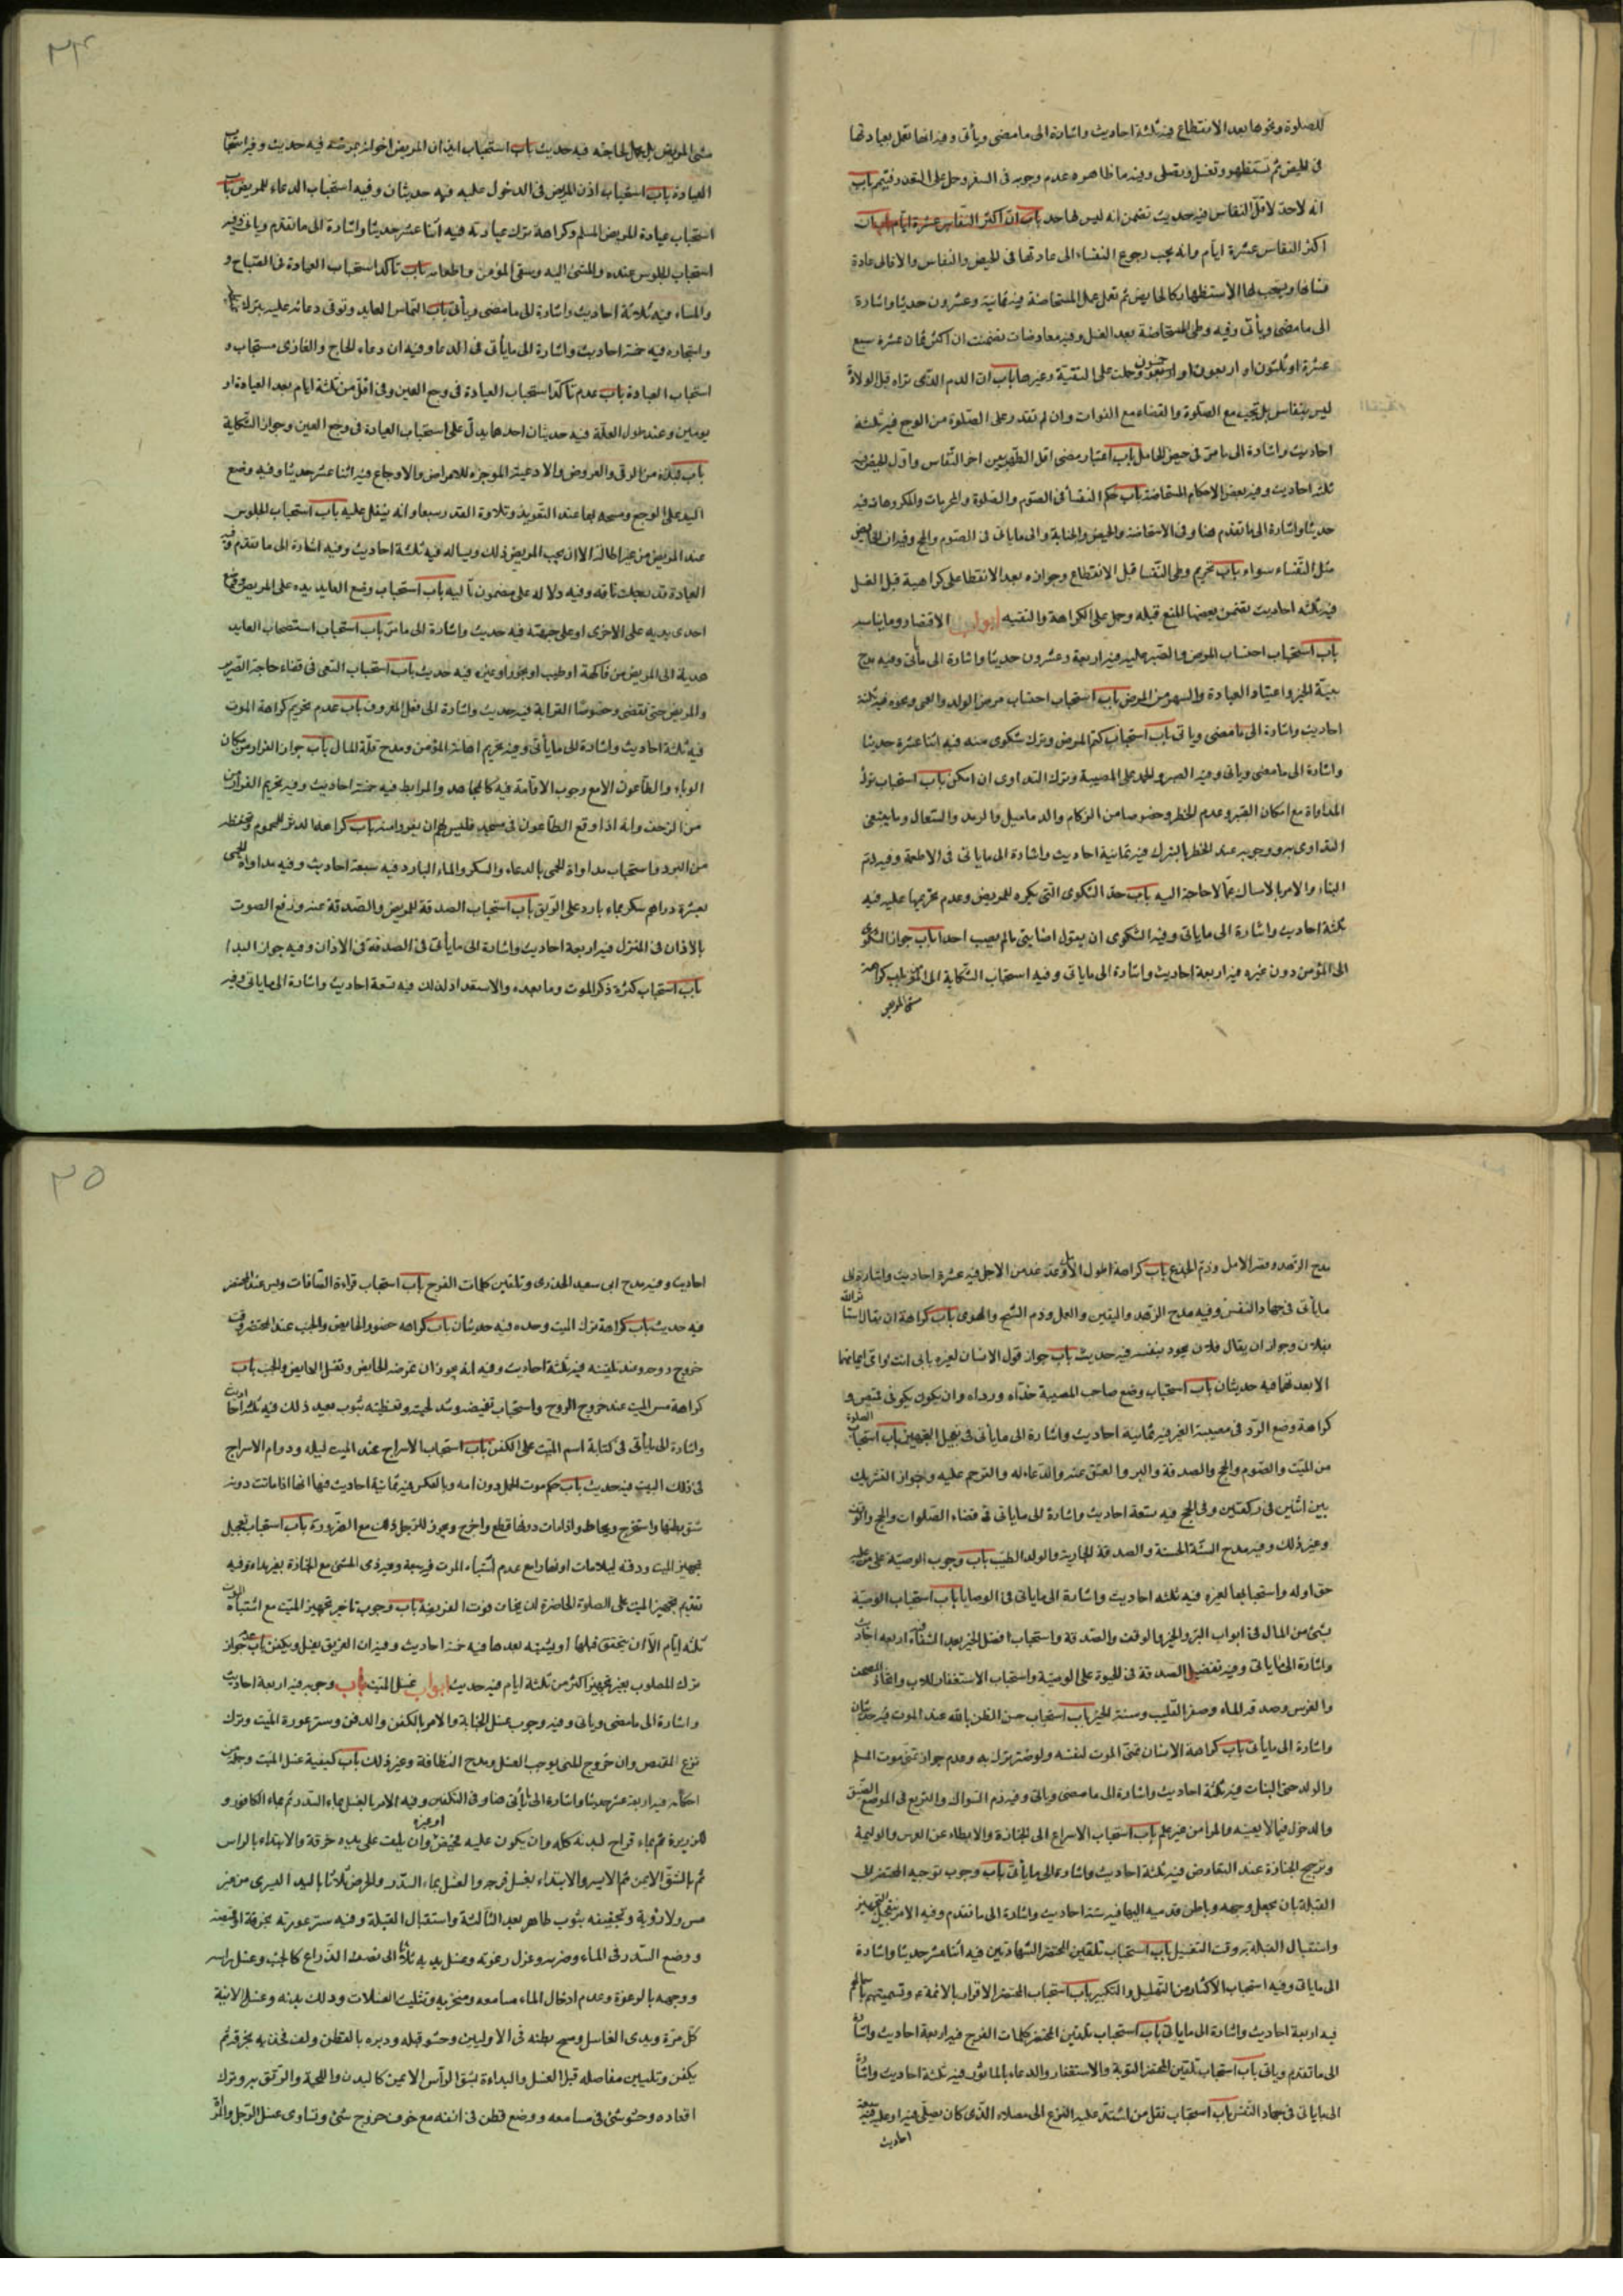 للصلوة ونحوها بعد الانقطاع فيه ثلثة احاديث واشارة الى ما مضى ويأتى وفيه انها تعمل بعادتها
فى الحيض ثم تستظهر وتغسل وتصلى وفيه ما ظاهره عدم وجوبه فى السفر وحمل على التعذر فتيمم باب
انه لا حد لاقل النفاس فيه حديث تضمن انه ليس لها حد باب ان اكثر النفاس عشرة ايام باب ان
اكثر النفاس عشرة ايام وانه يجب رجوع النفساء الى عادتها فى الحيض والنفاس والا فالى عادة
نسائها ويستحب لها الاستظهار كالحايض ثم تعمل عمل المستحاضة فيه ثمانية وعشرون حديثا واشارة
الى ما مضى ويأتى وفيه وطى المستحاضة بعد الغسل وفيه معارضات تضمنت ان اكثره ثمان عشرة سبع
عشرة او ثلثون او اربعون او خمسون وحملت على التقية وغيرها باب ان الدم الذى تراه قبل الولادة
ليس بنفاس بل تجب معه الصلوة والقضاء مع الفوات وان لم تقدر على الصلوة من الوجع فيه ثلثة
احاديث واشارة الى ما مر فى حيض الحامل باب اعتبار مضى اقل الطهر بين اخر النفاس واول الحيض فيه
ثلثة احاديث وفيه بعض الاحكام المستحاضة باب حكم النفساء فى الصوم والصلوة والمحرمات والمكروهات فيه
حديثا واشارة الى ما تقدم هنا وفى الاستحاضة والحيض والجنابة والى ما ياتى فى الصوم والحج وفيه ان الحايض
مثل النفساء سواء باب تحريم وطى النفسا قبل الانقطاع وجوازه بعد الانقطا على كراهية قبل الغسل
فيه ثلثه احاديث تضمن بعضها المنع قبله وحمل على الكراهة والتقيه ابواب الاحتضار وما يناسبه
باب استحباب احتساب المرض والصبر عليه فيه اربعة وعشرون حديثا واشارة الى ما يأتى وفيه مدح
بنية الخير واعتياد العبادة والسهر من المرض باب استحباب احتساب مرض الولد والعمى ونحوه فيه ثلثة
احاديث واشارة الى ما مضى وياتى باب استحباب كتم المرض وترك شكوى منه فيه اثنا عشرة حديثا
واشارة الى ما مضى وياتى وفيه الصبر والحمد على المصيبة وترك التداوى ان امكن باب استحباب ترك
المداواة مع امكان الصبر وعدم الخطر وخصوصا من الزكام والدماميل والرمد والسعال وما ينبغى
التداوى به ووجوبه عند الخطر بالترك فيه ثمانية احاديث واشارة الى ما ياتى فى الاطعمة وفيه ذم
البناء والامر بالامساك عما لا حاجة اليه باب حد الشكوى التى يكره للمريض وعدم تحريمها عليه فيه
ثلثة احاديث واشارة الى ما ياتى وفيه الشكوى ان يقول اصابنى ما لم يصب احدا باب جواز الشكوى
الى المؤمن دون غيره فيه اربعة احاديث واشارة الى ما ياتى وفيه استحباب الشكاية الى المؤمن باب كراهة
مشى المريض
٣۴
مشى المريض بل يحمل لحاجته فيه حديث باب استحباب ايذان المريض اخوانه بمرضه فيه حديث وفيه استحباب
العيادة باب استحباب اذن المريض فى الدخول عليه فيه حديثان وفيه استحباب الدعاء للمريض باب
استحباب عيادة المريض المسلم وكراهة ترك عيادته فيه اثنا عشر حديثا واشارة الى ما تقدم وياتى وفيه
استحباب الجلوس عنده والمشى اليه وسقى المؤمن واطعامه باب تأكد استحباب العيادة فى الصباح و
والمساء فيه ثلاثة احاديث واشارة الى ما مضى ويأتى باب التماس العايد وتوقى دعائه عليه بترك
واستحبابه فيه خمسة احاديث واشارة الى ما يأتى فى الدعا وفيه ان دعاء الحاج والغازى مستجاب و
استحباب العيادة باب عدم تأكد استحباب العيادة فى وجع العين وفى اقل من ثلثة ايام بعد العيادة او
يومين وعند طول العلة فيه حديثان احدهما يدل على استحباب العيادة فى وجع العين وجواز الشكاية
باب نبذة من الرقى والعروض والادعية الموجزة للامراض والاوجاع فيه اثنا عشر حديثا وفيه وضع
اليد على الوجع ومسحه بها عند التعويذ وتلاوة القدر سبعا وانه ينفل عليه باب استحباب الجلوس
عند المريض من غير اطالة الا ان يحب المريض ذلك ويساله فيه ثلثة احاديث وفيه اشارة الى ما تقدم وفيه
العيادة قدر حلب ناقه وفيه دلاله على مضمون تاليه باب استحباب وضع العايد يده على المريض ووضع
احدى يديه على الاخرى او على جبهته فيه حديث واشارة الى ما مر باب استحباب استصحاب العايد
هدية الى المريض من فاكهة او طيب او بخور او غيره فيه حديث باب استحباب السعى فى قضاء حاجة الضرير
والمريض حتى تقضى وخصوصا القرابة فيه حديث واشارة الى فعل المعروف باب عدم تحريم كراهة الموت
فيه ثلثة احاديث واشارة الى ما يأتى وفيه تحريم اهانة المؤمن ومدح قلة المال باب جواز الفرار من مكان
الوباء والطاعون الا مع وجوب الاقامة فيه كالمجاهد والمرابط فيه خمسة احاديث وفيه تحريم الفرار
من الزحف وانه اذا وقع الطاعون فى مسجد فليس لهم ان يفروا منه باب كراهة الدثر للمحموم وتحفظه
من البرد واستحباب مداواة الحمى بالدعاء والسكر والماء البارد فيه سبعة احاديث وفيه مداواة الحمى
بعشرة دراهم سكر بماء بارد على الريق باب استحباب الصدقة للمريض والصدقة عنه ورفع الصوت
بالاذان فى المنزل فيه اربعة احاديث واشارة الى ما يأتى فى الصدقة فى الاذان وفيه جواز البدا
باب استحباب كثرة ذكر الموت وما بعده والاستعداد لذلك فيه تسعة احاديث واشارة الى ما ياتى وفيه
مدح الزهد وقصر الامل وذم الجزع باب كراهة طول الامل وعد غد من الاجل فيه عشرة احاديث واشارة الى
ما يأتى فى جهاد النفس وفيه مدح الزهد واليقين والعمل وذم الشح والهوى باب كراهة ان يقال استاثر الله
بفلان وجواز ان يقال فلان يجود بنفسه فيه حديث باب جواز قول الانسان لغيره بابى انت وامى
الا بعد فيه حديثان باب استحباب وضع صاحب المصيبة حذاه ورداه وان يكون يكون فى قميص و
كراهة وضع الرد فى مصيبة الغير فيه ثمانية احاديث واشارة الى ما يأتى فى تعجيل التجهيز باب استحباب الصلوة
من الميت والصوم والحج والصدقة والبر والعتق عنه والدعاء له والترحم عليه وجواز التشريك
بين اثنين فى ركعتين وفى الحج فيه تسعة احاديث واشارة الى ما ياتى فى قضاء الصلوات والحج والوقف
وغير ذلك وفيه مدح السنة الحسنة والصدقة الجارية والولد الطيب باب وجوب الوصية على من عليه
حق او له واستحبابها لغيره فيه ثلثه احاديث واشارة الى ما ياتى فى الوصايا باب استحباب الوصية
بشئ من المال فى ابواب البر والخير والوقف والصدقة واستحباب افضل الخير بعد الشفاء فيه اربعه احاديث
واشارة الى ما ياتى وفيه تفضيل الصدقة فى الحيوة على الوصية واستحباب الاستغفار للاب واتخاذ المصحف
والغرس وصدقة الماء وحفر القليب وسنة الخير باب استحباب حسن الظن بالله عند الموت فيه حديثان
واشارة الى ما يأتى باب كراهة الانسان تمنى الموت لنفسه ولو لضر نزل به وعدم جواز تمنى موت المسلم
والولد حتى البنات فيه ثلثة احاديث واشارة الى ما مضى وياتى وفيه ذم السؤال والتربع فى الموضع الضيق
والدخول فيما لا يعنيه والمرا من غير علم باب استحباب الاسراع الى الجنازة والابطاء عن العرس والوليمة
وترجيح الجنازة عند التعارض فيه ثلثة احاديث واشارة الى ما يأتى باب وجوب توجيه المحتضر الى
القبلة بان يجعل وجهه وباطن قدميه اليها فيه ستة احاديث واشارة الى ما تقدم وفيه الامر بتعجيل التجهيز
واستقبال القبلة به وقت التغسيل باب استحباب تلقين المحتضر الشهادتين فيه اثنا عشر حديثا واشارة
الى ما ياتى وفيه استحباب الاكثار من التهليل والتكبير باب استحباب المحتضر الاقرار بالائمة ع وتسميتهم باسمائهم
فيه اربعة احاديث واشارة الى ما ياتى باب استحباب تلقين المحتضر كلمات الفرج فيه اربعة احاديث واشارة
الى ما تقدم وياتى باب استحباب تلقين المحتضر التوبة والاستغفار والدعاء بالماثور فيه ثلثة احاديث واشارة
الى ما ياتى فى جهاد النفس باب استحباب نقل من اشتد عليه النزع الى مصلاه الذى كان يصلى فيه او عليه فيه سبعة
احاديث
٣٥
احاديث وفيه مدح ابى سعيد الخدرى وتلقين كلمات الفرج باب استحباب قراءة الصافات ويس عند المحتضر
فيه حديث باب كراهة ترك الميت وحده فيه حديثان باب كراهه حضور الحايض والجنب عند المحتضر وقت
خروج روحه وعند تلقينه فيه ثلثة احاديث وفيه انه يجوز ان تمرضه الحايض وتغسل الحايض والجنب باب
كراهة مس الميت عند خروج الروح واستحباب تغميضه وشد لحيته وتغطيته بثوب بعيد ذلك فيه ثلثة احاديث
واشارة الى ما يأتى فى كتابة اسم الميت على الكفن باب استحباب الاسراج عند الميت ليله ودوام الاسراج
فى ذلك البيت فيه حديث باب حكم موت الحمل دون امه وبالعكس فيه ثمانية احاديث فيها انها اذا ماتت دونه
شق بطنها واستخرج ويخاط واذا مات دونها قطع واخرج ويجوز للرجل ذلك مع الضرورة باب استحباب تعجيل
تجهيز الميت ودفنه ليلا مات او نهارا مع عدم اشتباه الموت فيه سبعة وفيه ذى المشى مع الجنازة بغير رداء وفيه
تقديم تجهيز الميت على الصلوة الحاضرة ان يخاف فوت الفريضة باب وجوب تاخير تجهيز الميت مع اشتباه الموت
ثلثه ايام الا ان يتحقق قبلها او يشتبه بعدها فيه خمسة احاديث وفيه ان الغريق يغسل ويكفن باب عدم جواز
ترك المصلوب بغير تجهيز اكثر من ثلثة ايام فيه حديث ابواب غسل الميت باب وجوبه فيه اربعة احاديث
واشارة الى ما مضى وياتى وفيه وجوب غسل الجنابة والامر بالكفن والدفن وستر عورة الميت وترك
نزع القميص وان خروج المنى يوجب الغسل ومدح النظافة وغير ذلك باب كيفية غسل الميت وجملة من
احكامه فيه اربعة عشر حديثا واشارة الى ما يأتى هنا وفى التكفين وفيه الامر بالغسل بماء السدر ثم بماء الكافور و
الذريرة او غيره ثم بماء قراح لبدنه كله وان يكون عليه قميص وان يلف على يديه خرقة والابتداء بالراس
ثم بالشق الايمن ثم الايسر والابتداء بغسل فرجه والغسل بماء السدر والحرض ثلاثا باليد اليسرى من غير
مس ولا رؤية وتجفيفه بثوب طاهر بعد الثالثة واستقبال القبلة وفيه ستر عورته بخرقة او قميصه
ووضع السدر فى الماء وضربه وعزل رغوته وغسل يديه ثلاثا الى نصف الذراع كالجنب وغسل راسه
ووجهه بالرغوة وعدم ادخال الماء مسامعه ومنخريه وتثليث الغسلات ودلك بدنه وغسل الانية
كل مرة ويدى الغاسل ومسح بطنه فى الاوليين وحشو قبله ودبره بالقطن ولف فخذيه بخرقة ثم
يكفن وتليين مفاصله قبل الغسل والبداءة بشق الرأس الايمن كالبدن واللحية والرفق به وترك
اقعاده وحشو شئ فى مسامعه ووضع قطن فى انفه مع خوف خروج شئ وتساوى غسل الرجل والمرأة